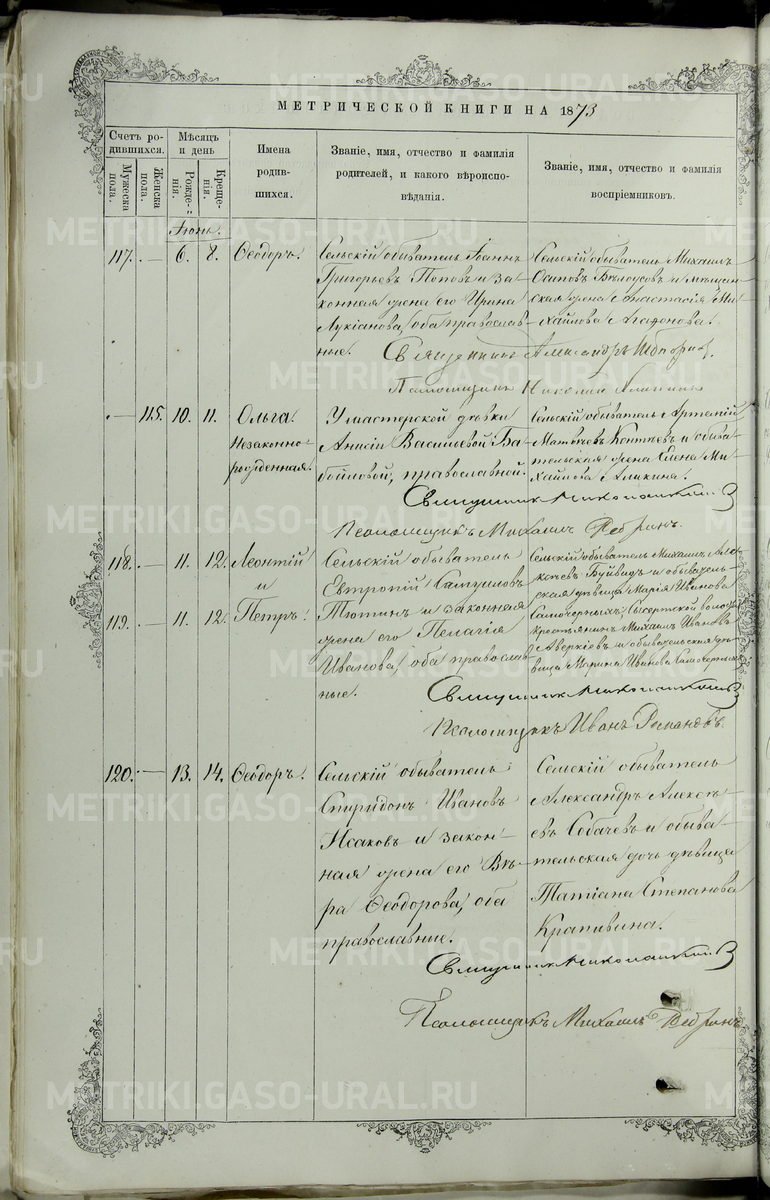 МЕТРИЧЕСКОЙ КНИГИ НА 1873
Счетъ ро-
дившихся.
Мужеска
пола.
Женска
пола.
Мѣсяцъ
и день
Рожде-
нія.
Креще-
нія.
Имена
родив-
шихся.
Званіе, имя, отчество и фамилія
родителей, и какого вѣроиспо-
вѣданія.
Званіе, имя, отчество и фамилія
воспріемниковъ.
Іюнь.
117. — 6. 8. Ѳеодоръ.
Сельскій обыватель Іоаннъ
Григорьевъ Поповъ и за-
конная жена его Ирина
Лукіанова, оба православ-
ные.
Сельскій обыватель Михаилъ
Осиповъ Бѣлоусовъ и мѣщан-
ская жена Анастасія Ми-
хайлова Агафонова.
Священникъ Александръ
Псаломщикъ Николай
— 115. 10. 11. Ольга.
Незаконно-
рожденная.
У мастерской дѣвки
Анисіи Васильевой Ба-
бойловой, православной.
Сельскій обыватель Артемій
Матвѣевъ и обыва-
тельская жена Елена Ми-
хайлова Аликина.
Священникъ
Псаломщикъ Михаилъ
118. — 11. 12. Леонтій
и
119. — 11. 12. Петръ.
Сельскій обыватель
Евтропій
Тютинъ и законная
жена его Пелагія
Иванова, оба православ-
ные.
Сельскій обыватель Михаилъ Але-
ксѣевъ и обыватель-
ская дѣвица Марія Иванова
Самочерныхъ, Сысертской волости
крестьянинъ Михаилъ Ивановъ
Аверкіевъ и обывательская дѣ-
вица Марина Иванова
Священникъ
Псаломщикъ Иванъ Романовъ.
120. — 13. 14. Ѳеодоръ.
Сельскій обыватель
Спиридонъ Ивановъ
Исаковъ и закон-
ная жена его Вѣ-
ра Ѳеодорова, оба
православные.
Сельскій обыватель
Александръ Алексѣ-
евъ Собачевъ и обыва-
тельская дочь дѣвица
Татіана Степанова
Крапивина.
Священникъ
Псаломщикъ Михаилъ
METRIKI.GASO-URAL.RU